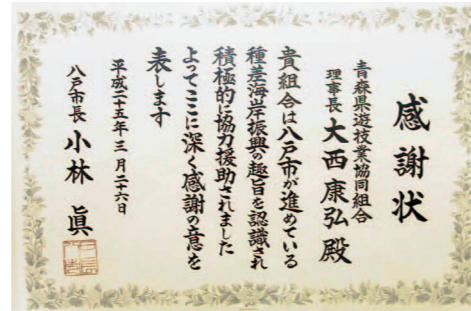 感謝状
青森県遊技業協同組合
理事長 大西康弘殿
貴組合は八戸市が進めている
種差海岸振興の趣旨を認識され
積極的に協力援助されました
よってここに深く感謝の意を
表します
平成二十五年三月二十六日
八戸市長 小林 眞